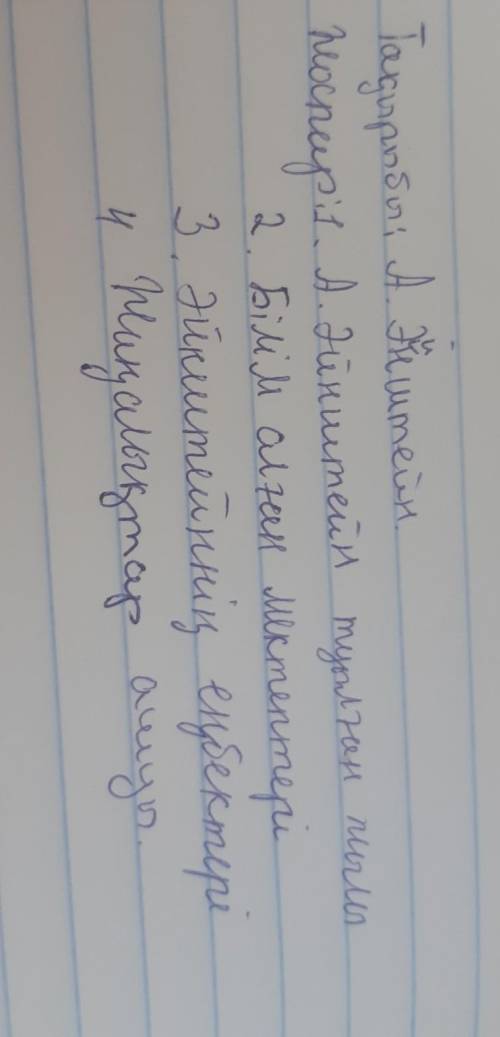 Тақырыбы: А. Эйнштейн.
Жоспар: 1. А. Эйнштейн туылған жылы
2. Білім алған мектептері
3. Эйнштейннің еңбектері
4 Жаңалықтар ашуы.